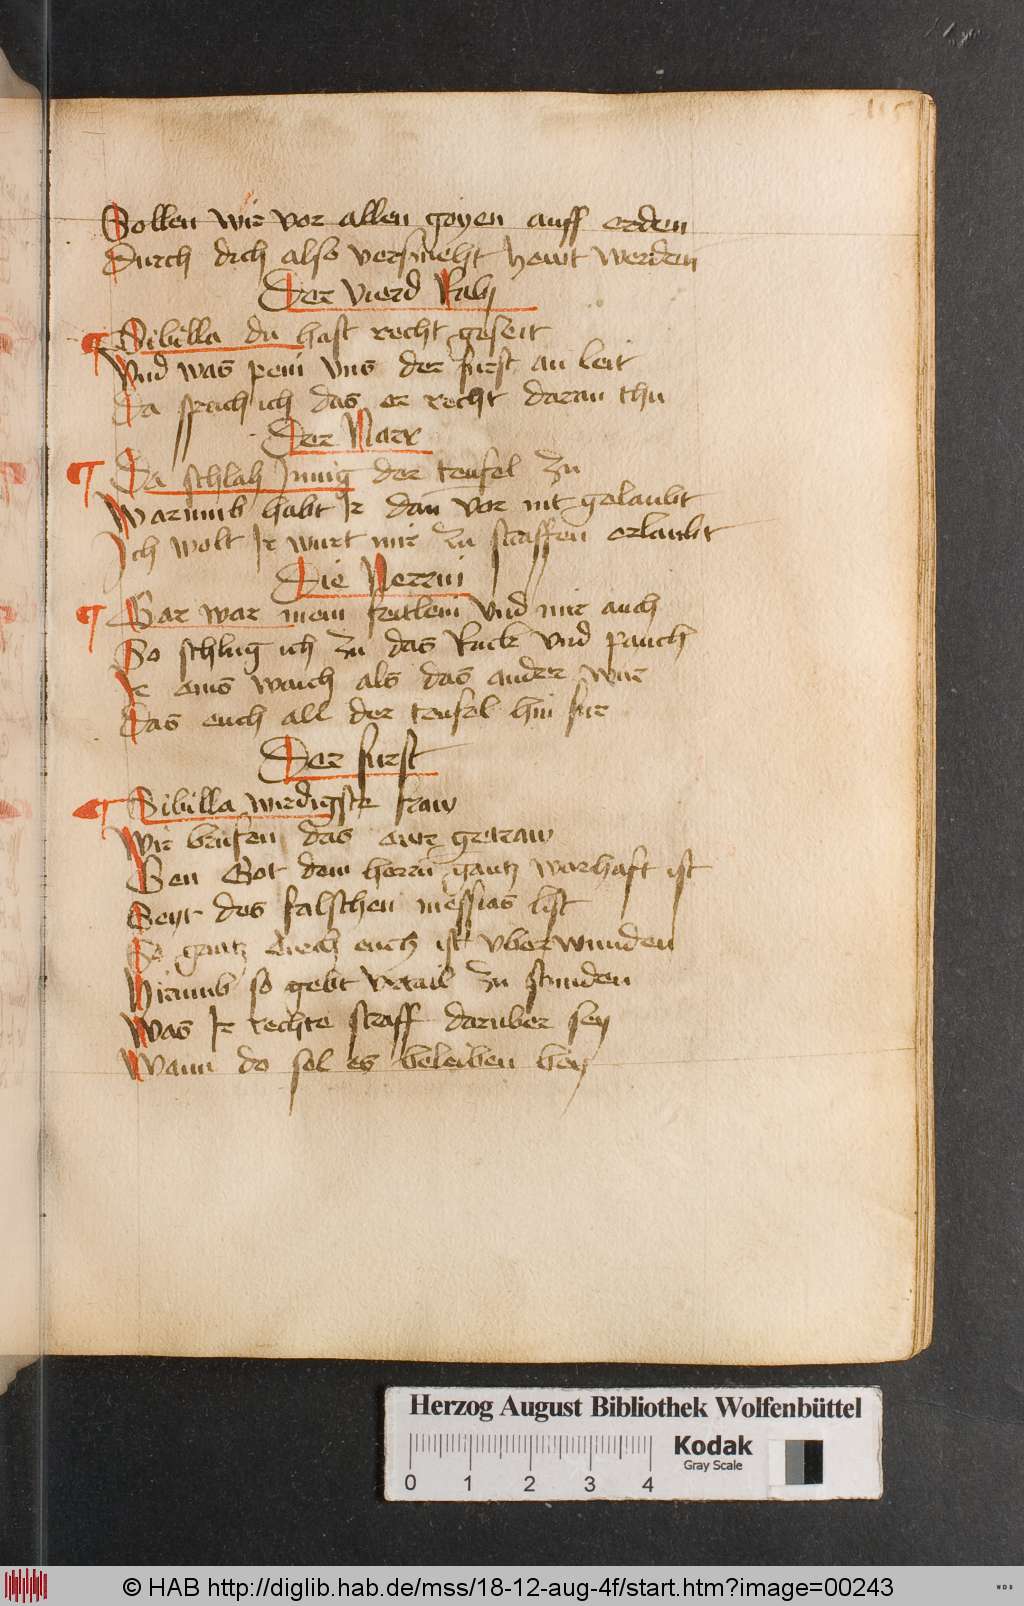 115
Sollen wir vor allen goyen auff erden
Durch dich also versmeht hewt werden
Der vierd Raby
Sibilla du hast recht geseit
Vnd was pein vns der furst an leit
Da sprich ich das er recht daran thu
Der Narr
Da schlah Innig der teufel zu
Warumb habt Ir dan vor nit gelaubt
Ich wolt Ir wurt mir zu straffen erlaubt
Die Nerrin
Gar war mein freulein vnd mir auch
So schlug ich zu das Ruck vnd pauch
Ir eins waich als das ander wur
Das euch all der teufel hin fur
Der furst
Sibilla wirdigste fraw
Wir brufen das ewr getraw
Gen Got dem herrn gantz warhaft ist
Seyt des falschen messias list
So gantz durch euch ist vberwunden
Hirumb so gebt vrtail zu stunden
Was Ir rechte straff daruber sey
Wann do sol es beleiben bey
Herzog August Bibliothek Wolfenbüttel
Kodak
Gray Scale
0 1 2 3 4
© HAB http://diglib.hab.de/mss/18-12-aug-4f/start.htm?image=00243